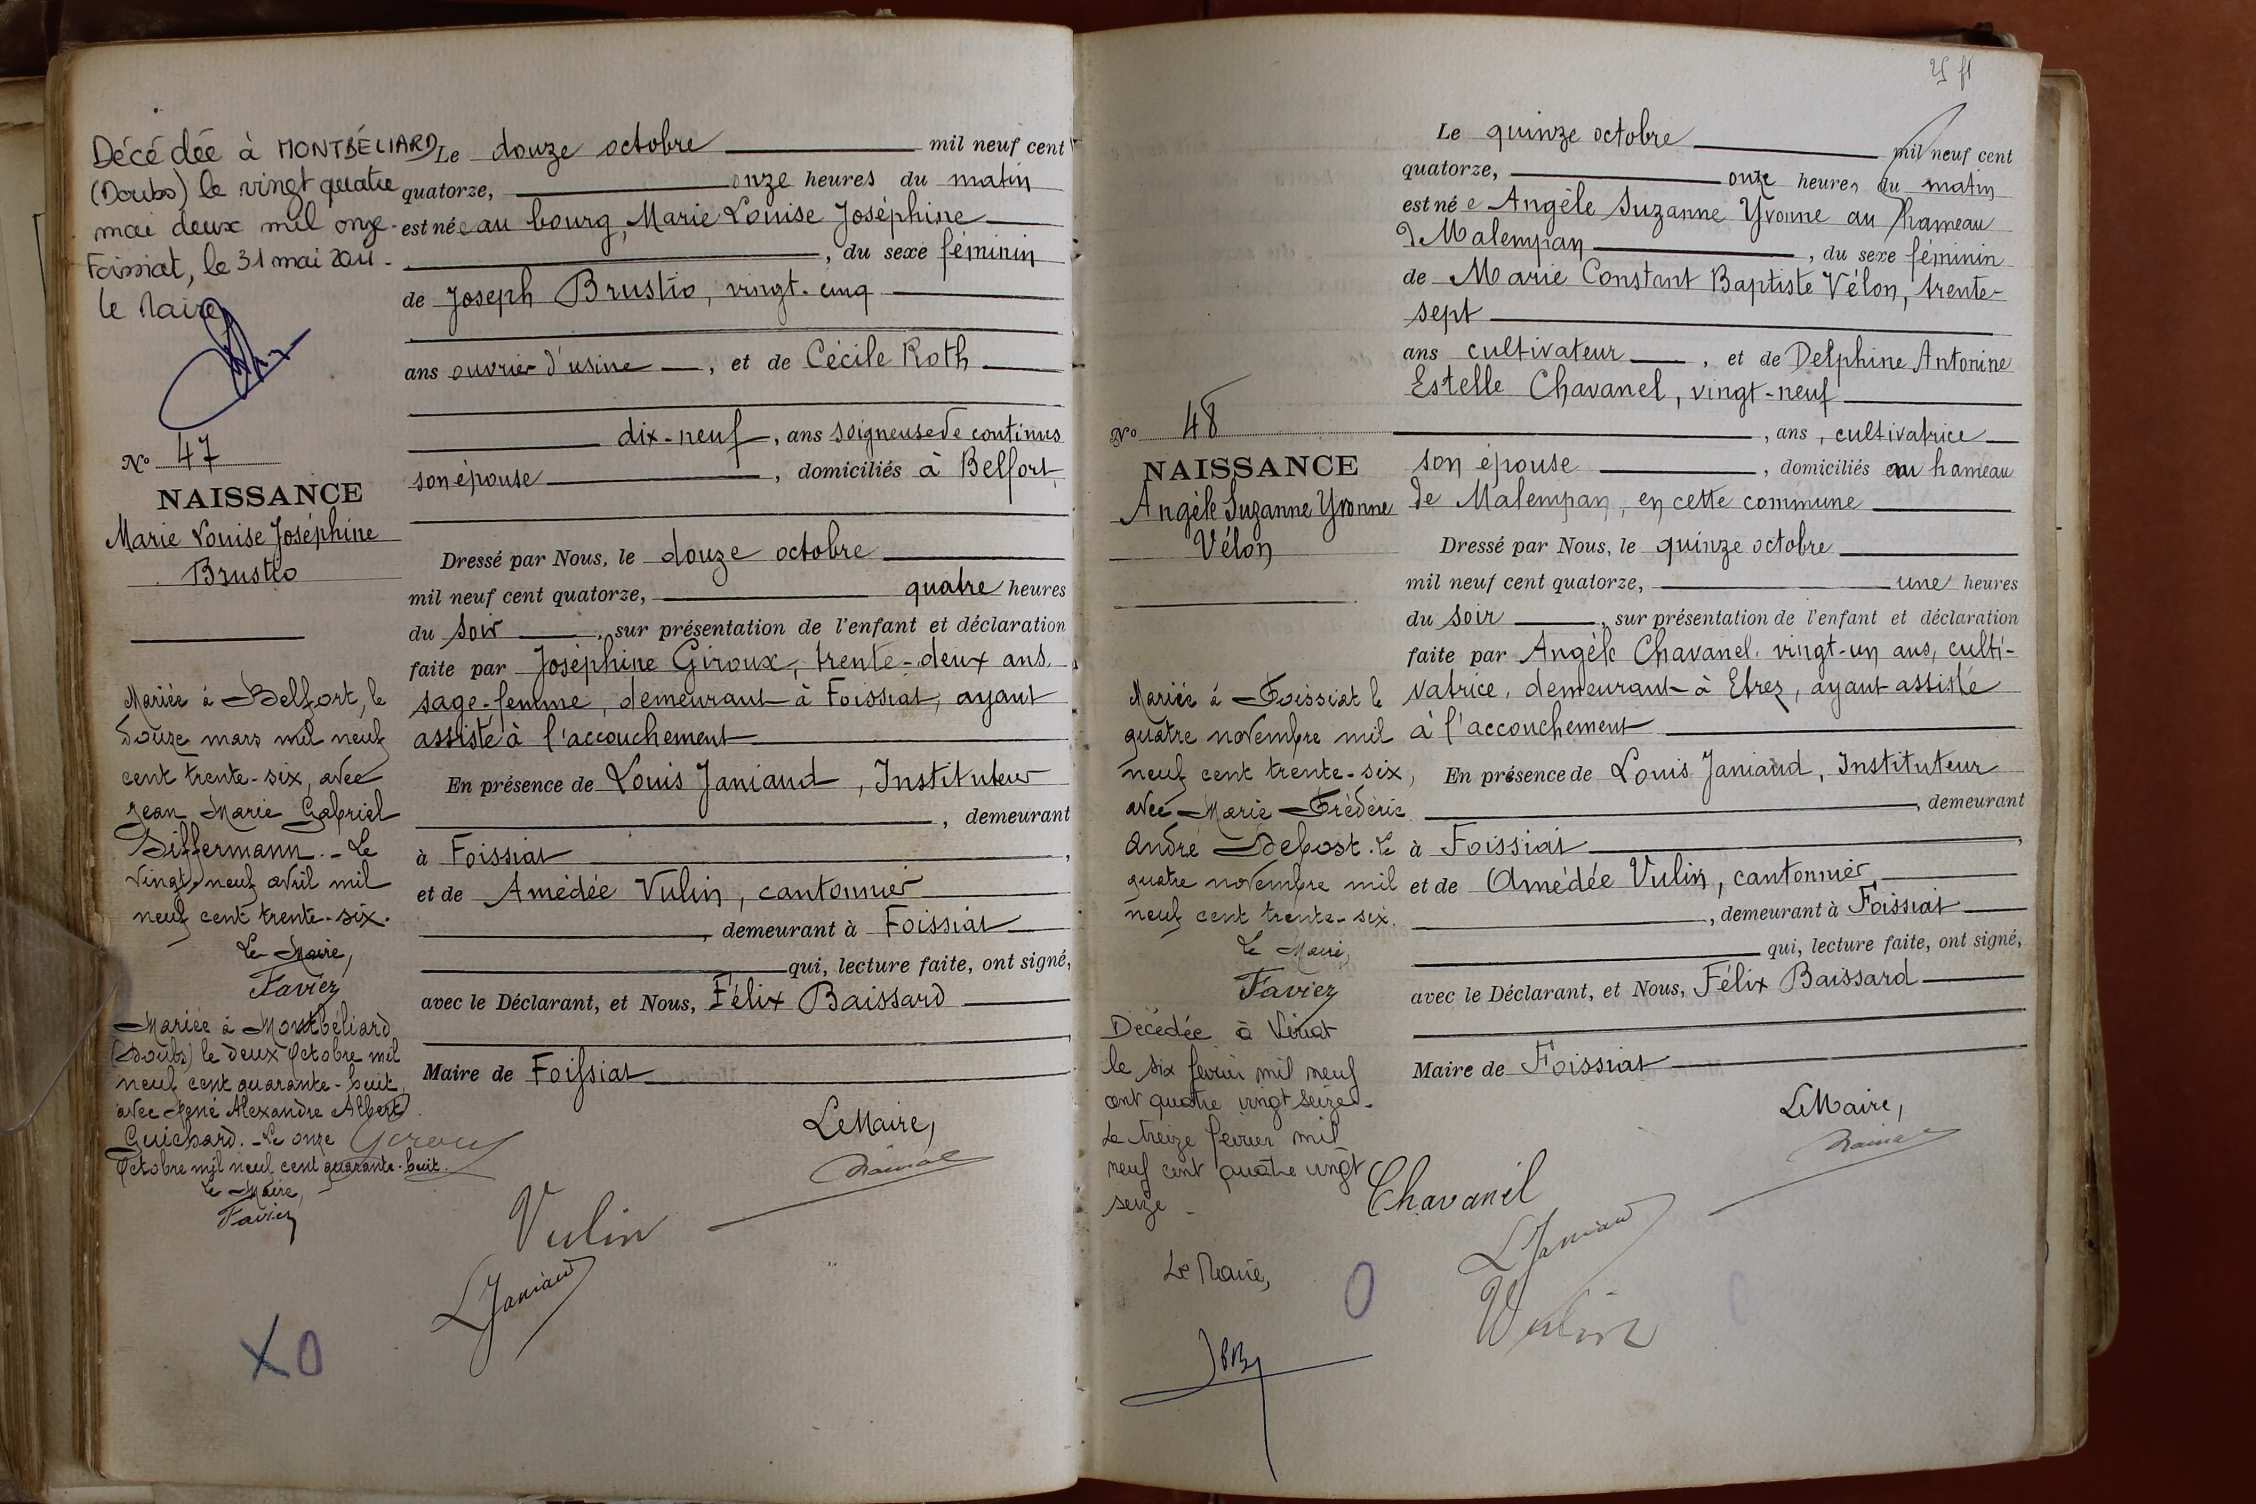 Décédée à MONTBÉLIARD
(Doubs) le vingt quatre
mai deux mil onze.
Foissiat, le 31 mai 2011.
le Maire
N° 47
NAISSANCE
Marie Louise Joséphine
Brustio
Mariée à Belfort, le
douze mars mil neuf
cent trente-six, avec
Jean Marie Gabriel
Differmann. - Le
vingt-neuf avril mil
neuf cent trente-six.
Le Maire,
Favier
Mariée à Montbéliard
(Doubs) le deux Octobre mil
neuf cent quarante-huit,
avec René Alexandre Albert
Guichard. - Le onze
Octobre mil neuf cent quarante-huit.
Le Maire,
Favier
Le douze octobre mil neuf cent
quatorze, onze heures du matin
est née au bourg, Marie Louise Joséphine
, du sexe féminin
de Joseph Brustio, vingt-cinq
ans ouvrier d'usine , et de Cécile Roth
dix-neuf , ans soigneuse de continus
son épouse , domiciliés à Belfort,
Dressé par Nous, le douze octobre
mil neuf cent quatorze, quatre heures
du soir , sur présentation de l'enfant et déclaration
faite par Joséphine Giroux, trente-deux ans,
sage-femme, demeurant à Foissiat, ayant
assisté à l'accouchement
En présence de Louis Janiaud, Instituteur
, demeurant
à Foissiat ,
et de Amédée Vulin, cantonnier
, demeurant à Foissiat
qui, lecture faite, ont signé,
avec le Déclarant, et Nous, Félix Baissard
,
Maire de Foissiat
Le Maire,
Giroux
Vulin
L Janiaud
X O
25 f1
N° 48
NAISSANCE
Angèle Suzanne Yvonne
Vélon
Mariée à Foissiat le
quatre novembre mil
neuf cent trente-six,
avec Marie Frédéric
André Debost. Le
quatre novembre mil
neuf cent trente-six.
Le Maire,
Favier
Décédée à Viriat
le six février mil neuf
cent quatre vingt seize.
Le treize février mil
neuf cent quatre vingt
seize.
Le Maire,
Le quinze octobre mil neuf cent
quatorze, onze heures du matin
est née Angèle Suzanne Yvonne au hameau
de Malempan , du sexe féminin
de Marie Constant Baptiste Vélon, trente-
sept
ans cultivateur , et de Delphine Antonine
Estelle Chavanel, vingt-neuf
, ans, cultivatrice
son épouse , domiciliés au hameau
de Malempan, en cette commune
Dressé par Nous, le quinze octobre
mil neuf cent quatorze, une heures
du soir , sur présentation de l'enfant et déclaration
faite par Angèle Chavanel, vingt-un ans, culti-
vatrice, demeurant à Etrez, ayant assisté
à l'accouchement
En présence de Louis Janiaud, Instituteur
, demeurant
à Foissiat ,
et de Amédée Vulin, cantonnier
, demeurant à Foissiat
qui, lecture faite, ont signé,
avec le Déclarant, et Nous, Félix Baissard
Maire de Foissiat
Le Maire,
Chavanel
L Janiaud
Vulin
O